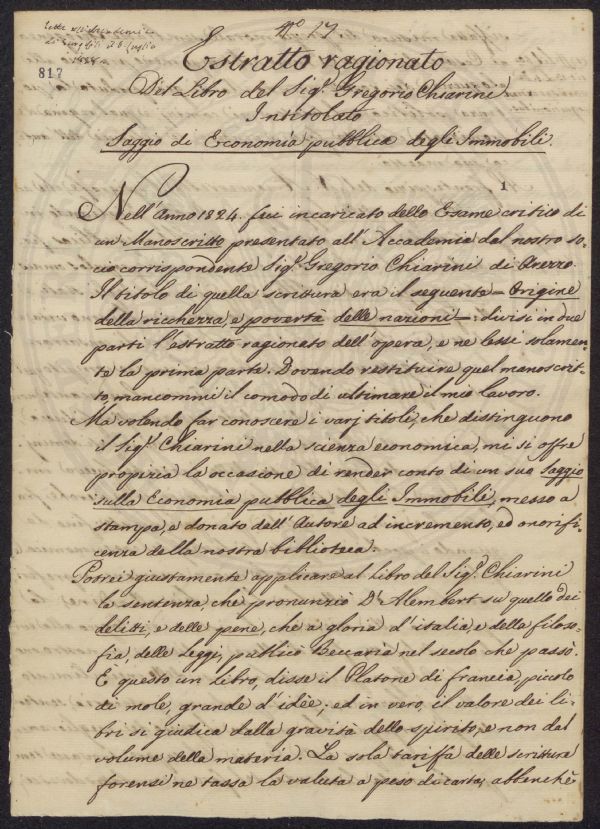 N.º 17
Letto nell'Accademia
817
Estratto ragionato
Del Libro del Sig.ʳ Gregorio Chiarini
Intitolato
Saggio di Economia pubblica degli Immobili.
1
Nell'Anno 1824. fui incaricato dello Esame critico di
un Manoscritto presentato all'Accademia dal nostro so-
cio corrispondente Sig.ʳ Gregorio Chiarini di Arezzo.
Il titolo di quella scrittura era il seguente – Origine
della ricchezza, e povertà delle nazioni –: divisi in due
parti l'estratto ragionato dell'opera, e ne lessi solamen-
te la prima parte. Dovendo restituire quel manoscrit-
to, mancommi il comodo di ultimare il mio lavoro.
Ma volendo far conoscere i varj titoli, che distinguono
il Sig.ʳ Chiarini nella scienza economica, mi si offre
propizia la occasione di render conto di un suo saggio
sulla Economia pubblica degli Immobili, messo a
stampa, e donato dall'Autore ad incremento, ed onorifi-
cenza della nostra biblioteca.
Potrei giustamente applicare al Libro del Sig.ʳ Chiarini
la sentenza, che pronunziò D'Alembert su quello dei
delitti, e delle pene, che a gloria d'italia, e della filoso-
fia, delle Leggi, pubblicò Beccaria nel secolo che passò.
È questo un Libro, disse il Platone di francia, piccolo
di mole, grande d'idèe; ed in vero, il valore dei li-
bri si giudica dalla gravità dello spirito, e non dal
volume della materia. La sola tariffa delle scritture
forensi ne tassa la valuta a peso di carta; abbenchè